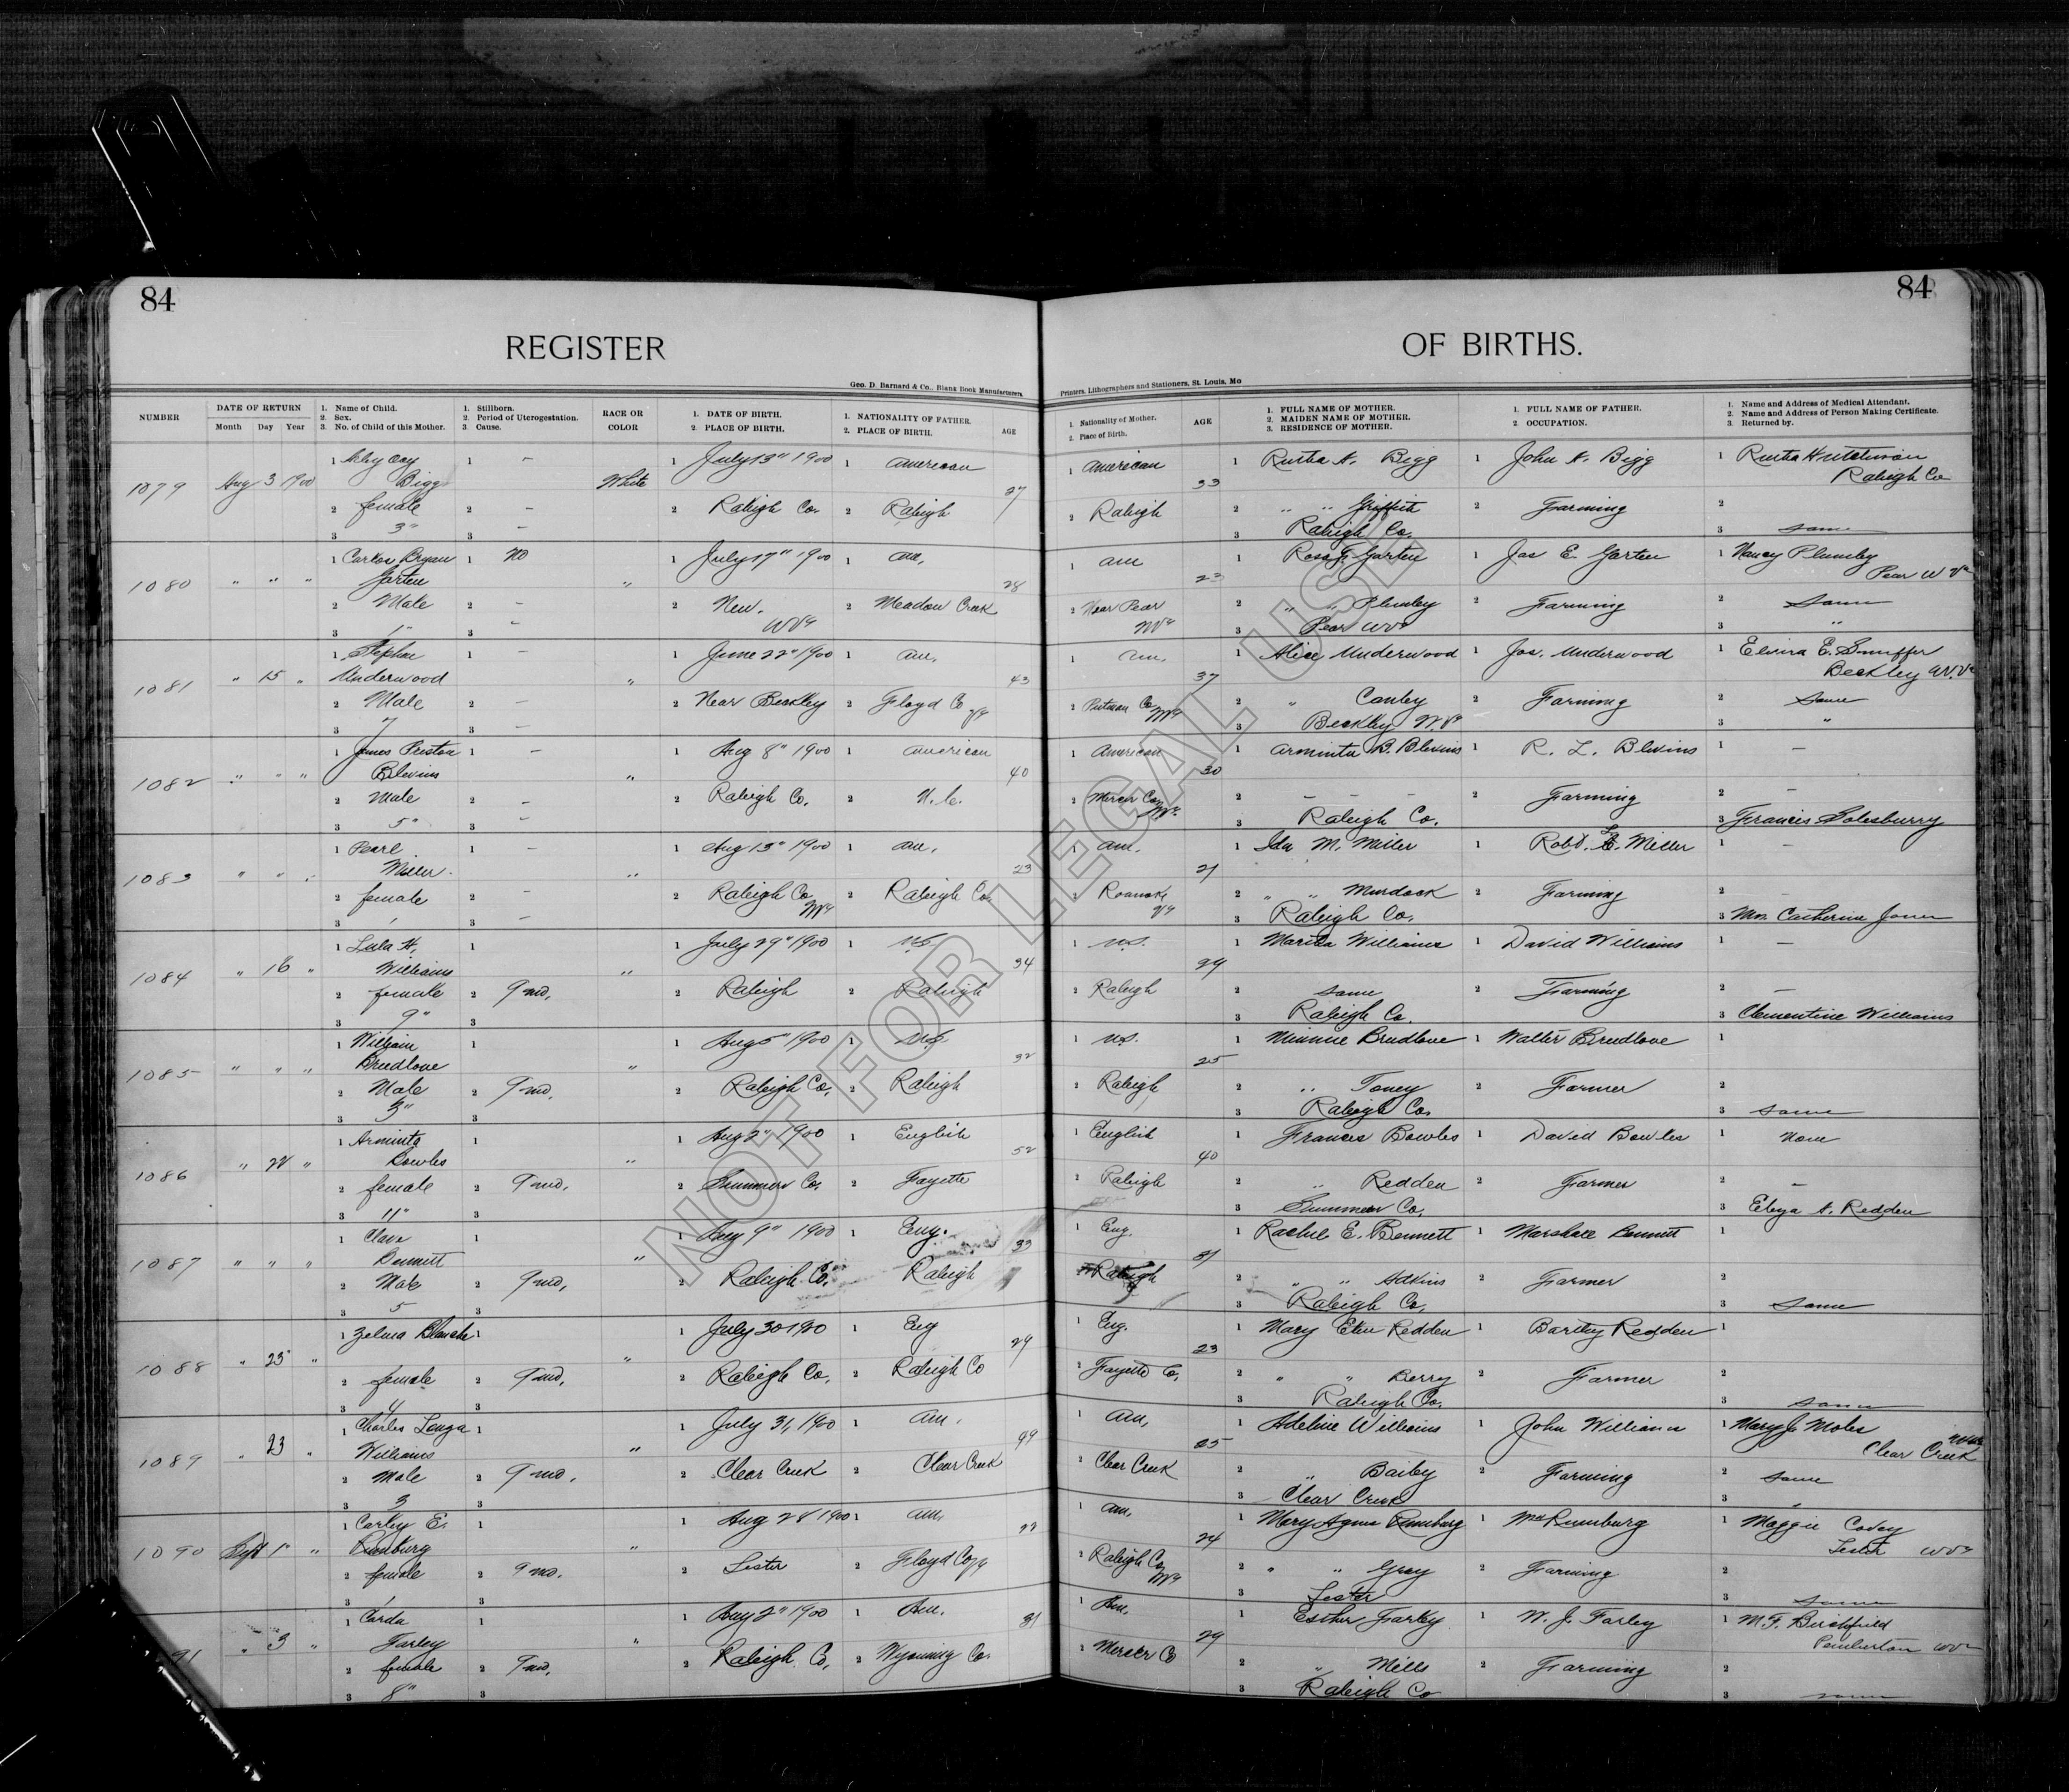 84
84
REGISTER
OF BIRTHS.
Geo. D. Barnard & Co., Blank Book Manufacturers
Printers, Lithographers and Stationers, St. Louis, Mo
NUMBER
DATE OF RETURN
Month Day Year
1. Name of Child.
2. Sex.
3. No. of Child of this Mother.
1. Stillborn.
2. Period of Uterogestation.
3. Cause.
RACE OR
COLOR
1. DATE OF BIRTH.
2. PLACE OF BIRTH.
1. NATIONALITY OF FATHER.
2. PLACE OF BIRTH.
AGE
1. Nationality of Mother.
2. Place of Birth.
AGE
1. FULL NAME OF MOTHER.
2. MAIDEN NAME OF MOTHER.
3. RESIDENCE OF MOTHER.
1. FULL NAME OF FATHER.
2. OCCUPATION.
1. Name and Address of Medical Attendant.
2. Name and Address of Person Making Certificate.
3. Returned by.
1079 Aug 3 1900
1 Bigg
2 female 2 –
3 3" 3 –
White
1 July 13" 1900 1 American 27
2 Raleigh Co. 2 Raleigh
1 American 33 1 A. Bigg 1 John A. Bigg 1 Hutchinson
Raleigh Co
2 Raleigh 2 " " Griffith 2 Farming 2
3 Raleigh Co. 3 same
1080 " " "
1 Bryan 1 No
Garten
2 Male 2 –
3 1" 3 –
"
1 July 17" 1900 1 am, 28
2 New. 2 Meadow Creek
WVa
1 am 1 Rosa Garten 1 Jas E. Garten 1 Nancy Plumley
Pear W Va
2 Near Pear 2 " " Plumley 2 Farming 2 Same
WVa 3 Pear WVa 3 "
1081 " 15 "
1 Stephen 1 –
Underwood
2 Male 2 –
3 7 3 –
"
1 June 22" 1900 1 am, 43
2 Near Beckley 2 Floyd Co Va
1 am. 37 1 Alice Underwood 1 Jos. Underwood 1 E. Snuffer
Beckley W.Va
2 Putnam Co WVa 2 " 2 Farming 2 Same
3 Beckley W.Va 3 "
1082 " " "
1 James Preston 1 –
Blevins
2 Male 2 –
3 5" 3 –
"
1 Aug 8" 1900 1 American 40
2 Raleigh Co. 2 N.C.
1 American 30 1 Arminta B. Blevins 1 R. L. Blevins 1 –
2 Mercer Co WVa. 2 – – – 2 Farming 2 –
3 Raleigh Co. 3 Francis Solesburry
1083 " " "
1 Pearl 1 –
Miller
2 female 2 –
3 1 3 –
"
1 Aug 13" 1900 1 am, 23
2 Raleigh Co WVa 2 Raleigh Co.
1 am. 21 1 Ida M. Miller 1 Robt. L. Miller 1 –
2 Roanoke Va 2 " " Murdock 2 Farming 2 –
3 Raleigh Co. 3 Mrs. Catherine Jones
1084 " 16 "
1 Lula H. 1
Williams
2 female 2 9 mo,
3 9" 3
"
1 July 29" 1900 1 U.S. 34
2 Raleigh 2 Raleigh
1 U.S. 29 1 Williams 1 David Williams 1 –
2 Raleigh 2 same 2 Farming 2 –
3 Raleigh Co. 3 Clementine Williams
1085 " " "
1 William 1
Breedlove
2 Male 2 9 mo,
3 3" 3
"
1 Aug 5" 1900 1 U.S. 32
2 Raleigh Co. 2 Raleigh
1 U.S. 25 1 Minnie Breedlove 1 Walter Breedlove 1
2 Raleigh 2 " Toney 2 Farmer 2
3 Raleigh Co. 3 same
1086 " 22 "
1 Arminta 1
Bowles
2 female 2 9 mo,
3 11" 3
"
1 Aug 2" 1900 1 English 52
2 Summers Co. 2 Fayette
1 English 40 1 Frances Bowles 1 David Bowles 1 None
2 Raleigh 2 " Redden 2 Farmer 2 –
3 Summers Co. 3 A. Redden
1087 " " "
1 1
Bennett
2 Male 2 9 mo,
3 5 3
"
1 Aug 9" 1900 1 Eng. 33
2 Raleigh Co. Raleigh
1 Eng. 31 1 Rachel E. Bennett 1 Marshall Bennett 1
2 Raleigh 2 " " Adkins 2 Farmer 2
3 Raleigh Co. 3 Same
1088 " 23 "
1 Zelma Blanche 1
2 female 2 9 mo,
3 4 3
"
1 July 30 1900 1 Eng 29
2 Raleigh Co, 2 Raleigh Co
1 Eng. 23 1 Mary Ellen Redden 1 Bartley Redden 1
2 Fayette Co, 2 " " Berry 2 Farmer 2
3 Raleigh Co. 3 same
1089 " 23 "
1 Charles 1
Williams
2 Male 2 9 mo,
3 3 3
"
1 July 31, 1900 1 am.
2 Clear Creek 2 Clear Creek
1 am, 1 Adeline Williams 1 John Williams 1 Mary J. Moles
Clear Creek WVa
2 Clear Creek 2 " Bailey 2 Farming 2 Same
3 Clear Creek 3 "
1090 Sept 1" "
1 Carley E. 1
Rumburg
2 female 2 9 mo.
3 1 3
"
1 Aug 28 1900 1 am, 22
2 Lester 2 Floyd Co Va
1 am, 24 1 Mary Agnes Rumburg 1 Wm Rumburg 1 Maggie
Lester WVa
2 Raleigh Co WVa 2 " " Gray 2 Farming 2
3 Lester 3 same
91 " 3 "
1 1
Farley
2 female 2 9 mo,
3 8" 3
"
1 Aug 2" 1900 1 Am, 31
2 Raleigh Co, 2 Wyoming Co.
1 Am, 29 1 Esther Farley 1 W. J. Farley 1 M. F. Burchfield
Pemberton WVa
2 Mercer Co 2 " Mills 2 Farming 2
3 Raleigh Co 3 same
NOT FOR LEGAL USE